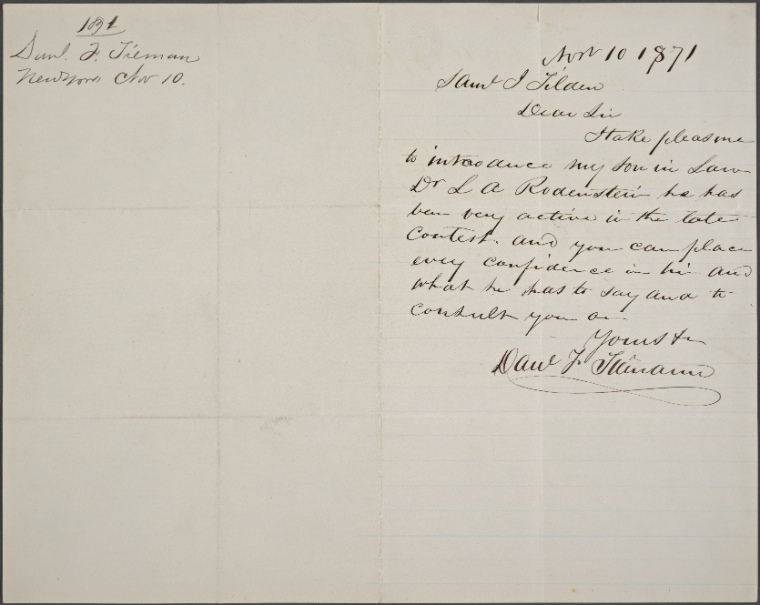 1871
Danl. F. Tieman
New York Nov 10.
Nov 10 1871
Saml J Tilden
Dear Sir
I take pleasure
to introduce my son in Law
Dr L A Rodenstein he has
been very active in the late
contest. and you can place
every confidence in him and
what he has to say and to
consult you on
Yours &c
Danl F. Tiemann